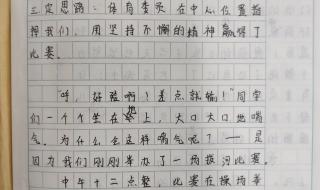 三定思路：体育委员在中心位置指
挥我们，用坚持不懈的精神赢得了
比赛。
“呼，好险啊！差点就输！”同学
们一个个坐在地上，大口大口地喘
气。为什么会这样喘气呢？——是
因为我们刚刚举办了一场拔河比赛。
中午十二点整，比赛在操场举